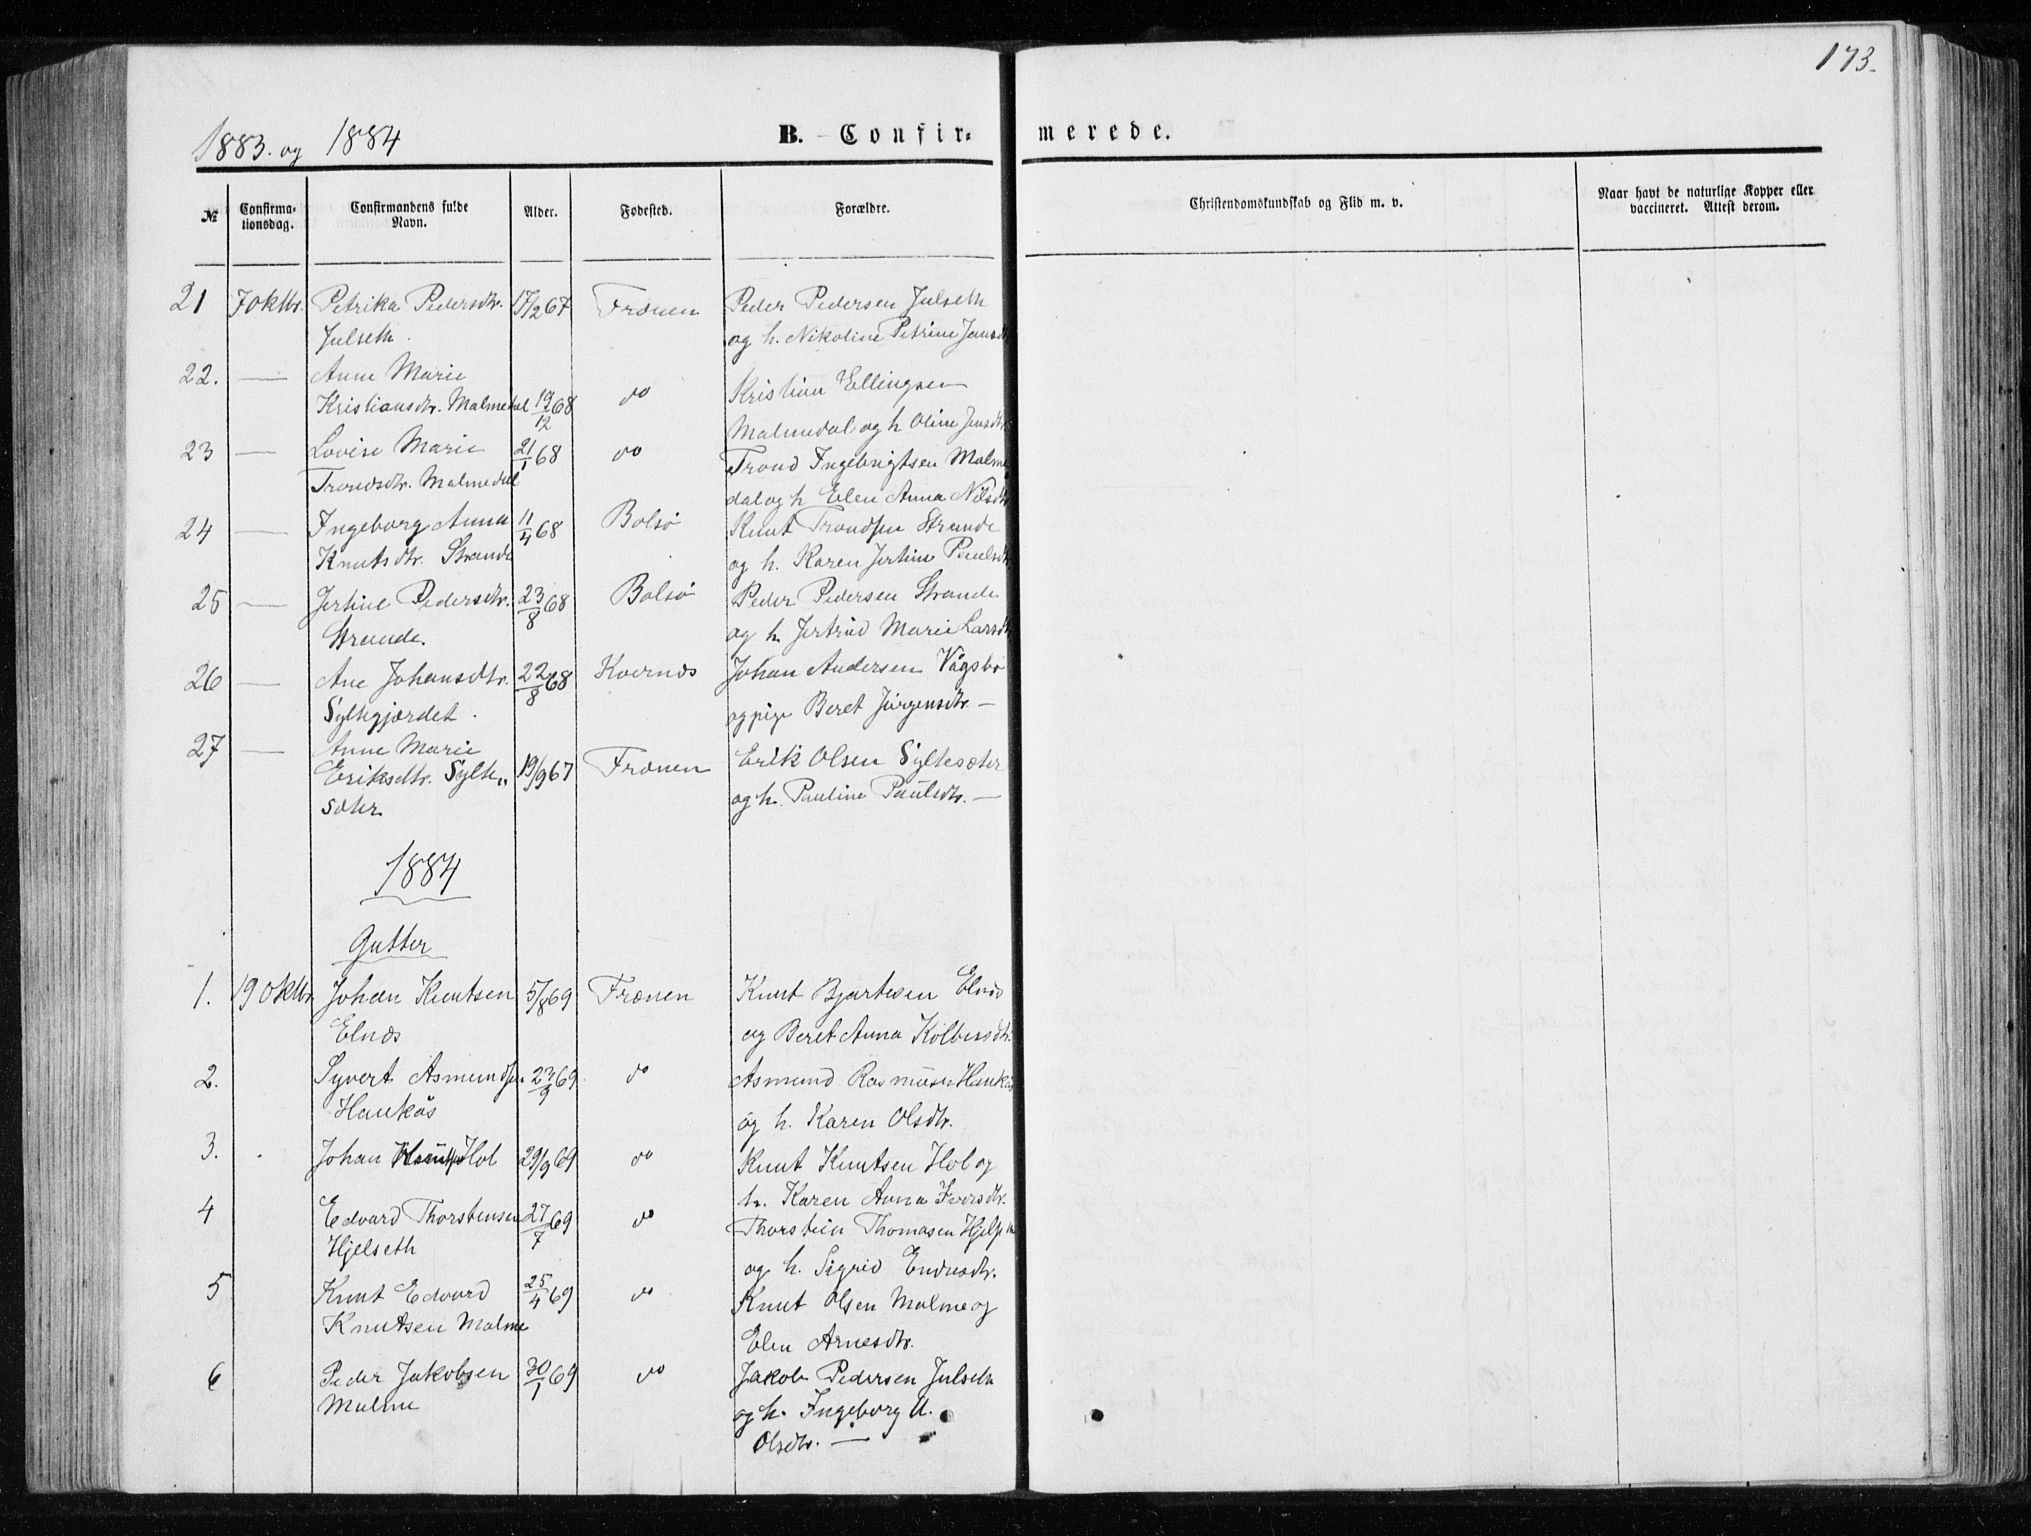 173.
1883. og 1884
B. Confirmerede.
№
Confirmationsdag.
Confirmandens fulde Navn.
Alder.
Fødested.
Forældre.
Christendomskundskab og Flid m. v.
Naar havt de naturlige Kopper eller vaccineret. Attest derom.
21 7 oktbr. Petrika Pedersdtr. 17/2 67 Frænen Peder Pedersen Julseth
Julseth. og h. Nikoline Petrine Jansdtr
22. — Anne Marie Kristian Ellingsen
Kristiansdtr. Malmedal 19/12 68 do Malmedal og h Oline Jensdtr
23 — Lovise Marie 21/1 68 do Trond Ingebrigtsen Malme
Trondsdtr. Malmedal dal og h Elen Anna Nilsdtr
24 — Ingeborg Anna 11/4 68 Bolsø Knut Trondsen Strande
Knutsdtr. Strande og h. Karen Jertine Paulsdtr
25 — Jertine Pedersdtr. 23/8 68 Bolsø Peder Pedersen Strande
Strande. og h. Jertrud Marie Larsdtr
26 — Ane Johansdtr. 22/8 68 Kvernæs Johan Andersen Vågsbø
Syltegjærdet. og pige Beret Jørgensdtr. —
27 — Anne Marie Erik Olsen Syltesæter
Eriksdtr. Sylte„ 19/9 67 Frænen og h. Pauline Paulsdtr. —
sæter
1884
Gutter
1. 19 oktbr. Johan Knutsen 5/8 69 Frænen Knut Bjartesen Elnæs
Elnæs og Beret Anna Kolbensdtr.
2. Syvert Asmundsen 23/9 69 do Asmund Rasmusen Haukås
Haukås og h. Karen Olsdtr.
3. Johan Knutsen Hol 29/9 69 do Knut Knutsen Hol og
h. Karen Anna Iversdtr.
4 Edvard Thorstensen 27/7 69 do Thorstein Thomasen Hjelseth
Hjelseth og h. Sigrid Endresdtr.
5 Knut Edvard 25/4 69 do Knut Olsen Malme og
Knutsen Malme Elen Arnesdtr.
6 Peder Jakobsen 30/1 69 do Jakob Pedersen Julseth
Malme og h. Ingeborg A.
Olsdtr. —